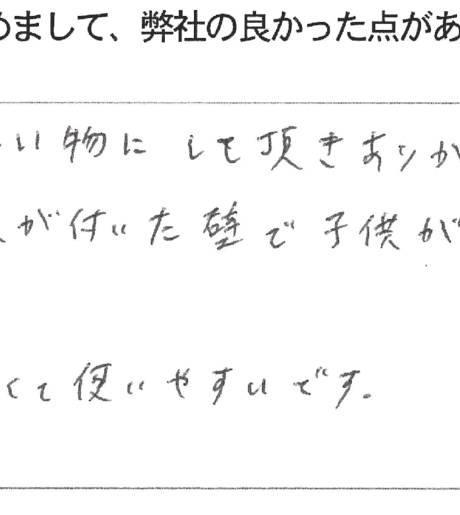 めまして、弊社の良かった点があ
い物にして頂きありが
が付いた壁で子供が
くて使いやすいです。